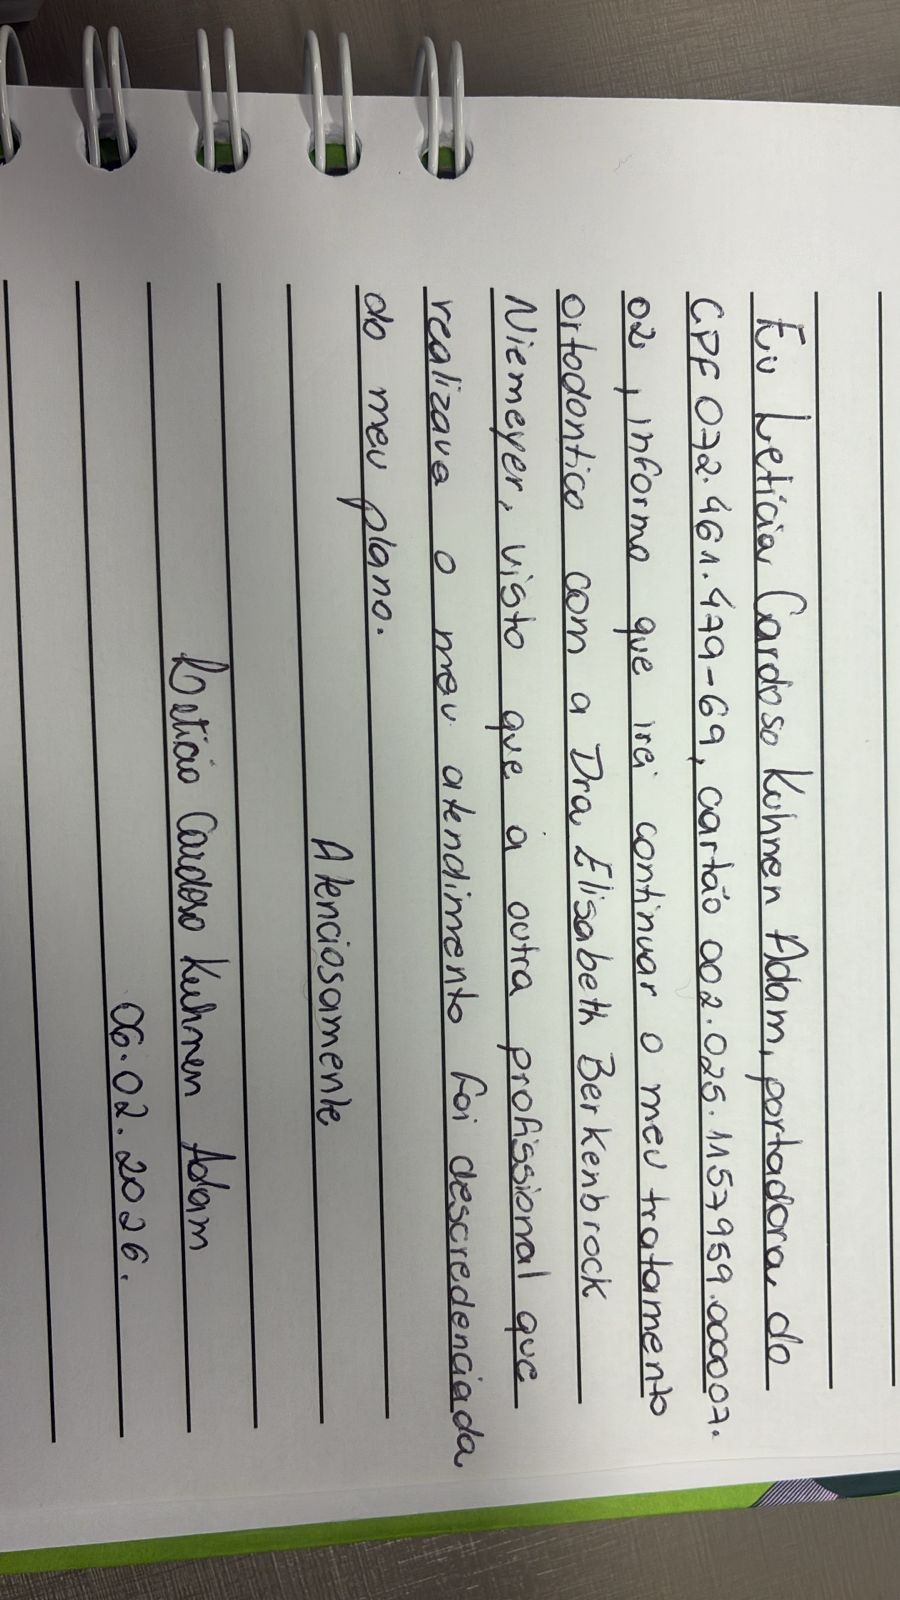 Eu Letícia Cardoso Kuhnen Adam, portadora do
CPF 072.461.479-69, cartão 002.025.1157959.000007.
02, informo que irei continuar o meu tratamento
ortodontico com a Dra Elisabeth Berkenbrock
Niemeyer, visto que a outra profissional que
realizava o meu atendimento foi descredenciada
do meu plano.
Atenciosamente
Letícia Cardoso Kuhnen Adam
06.02.2026.